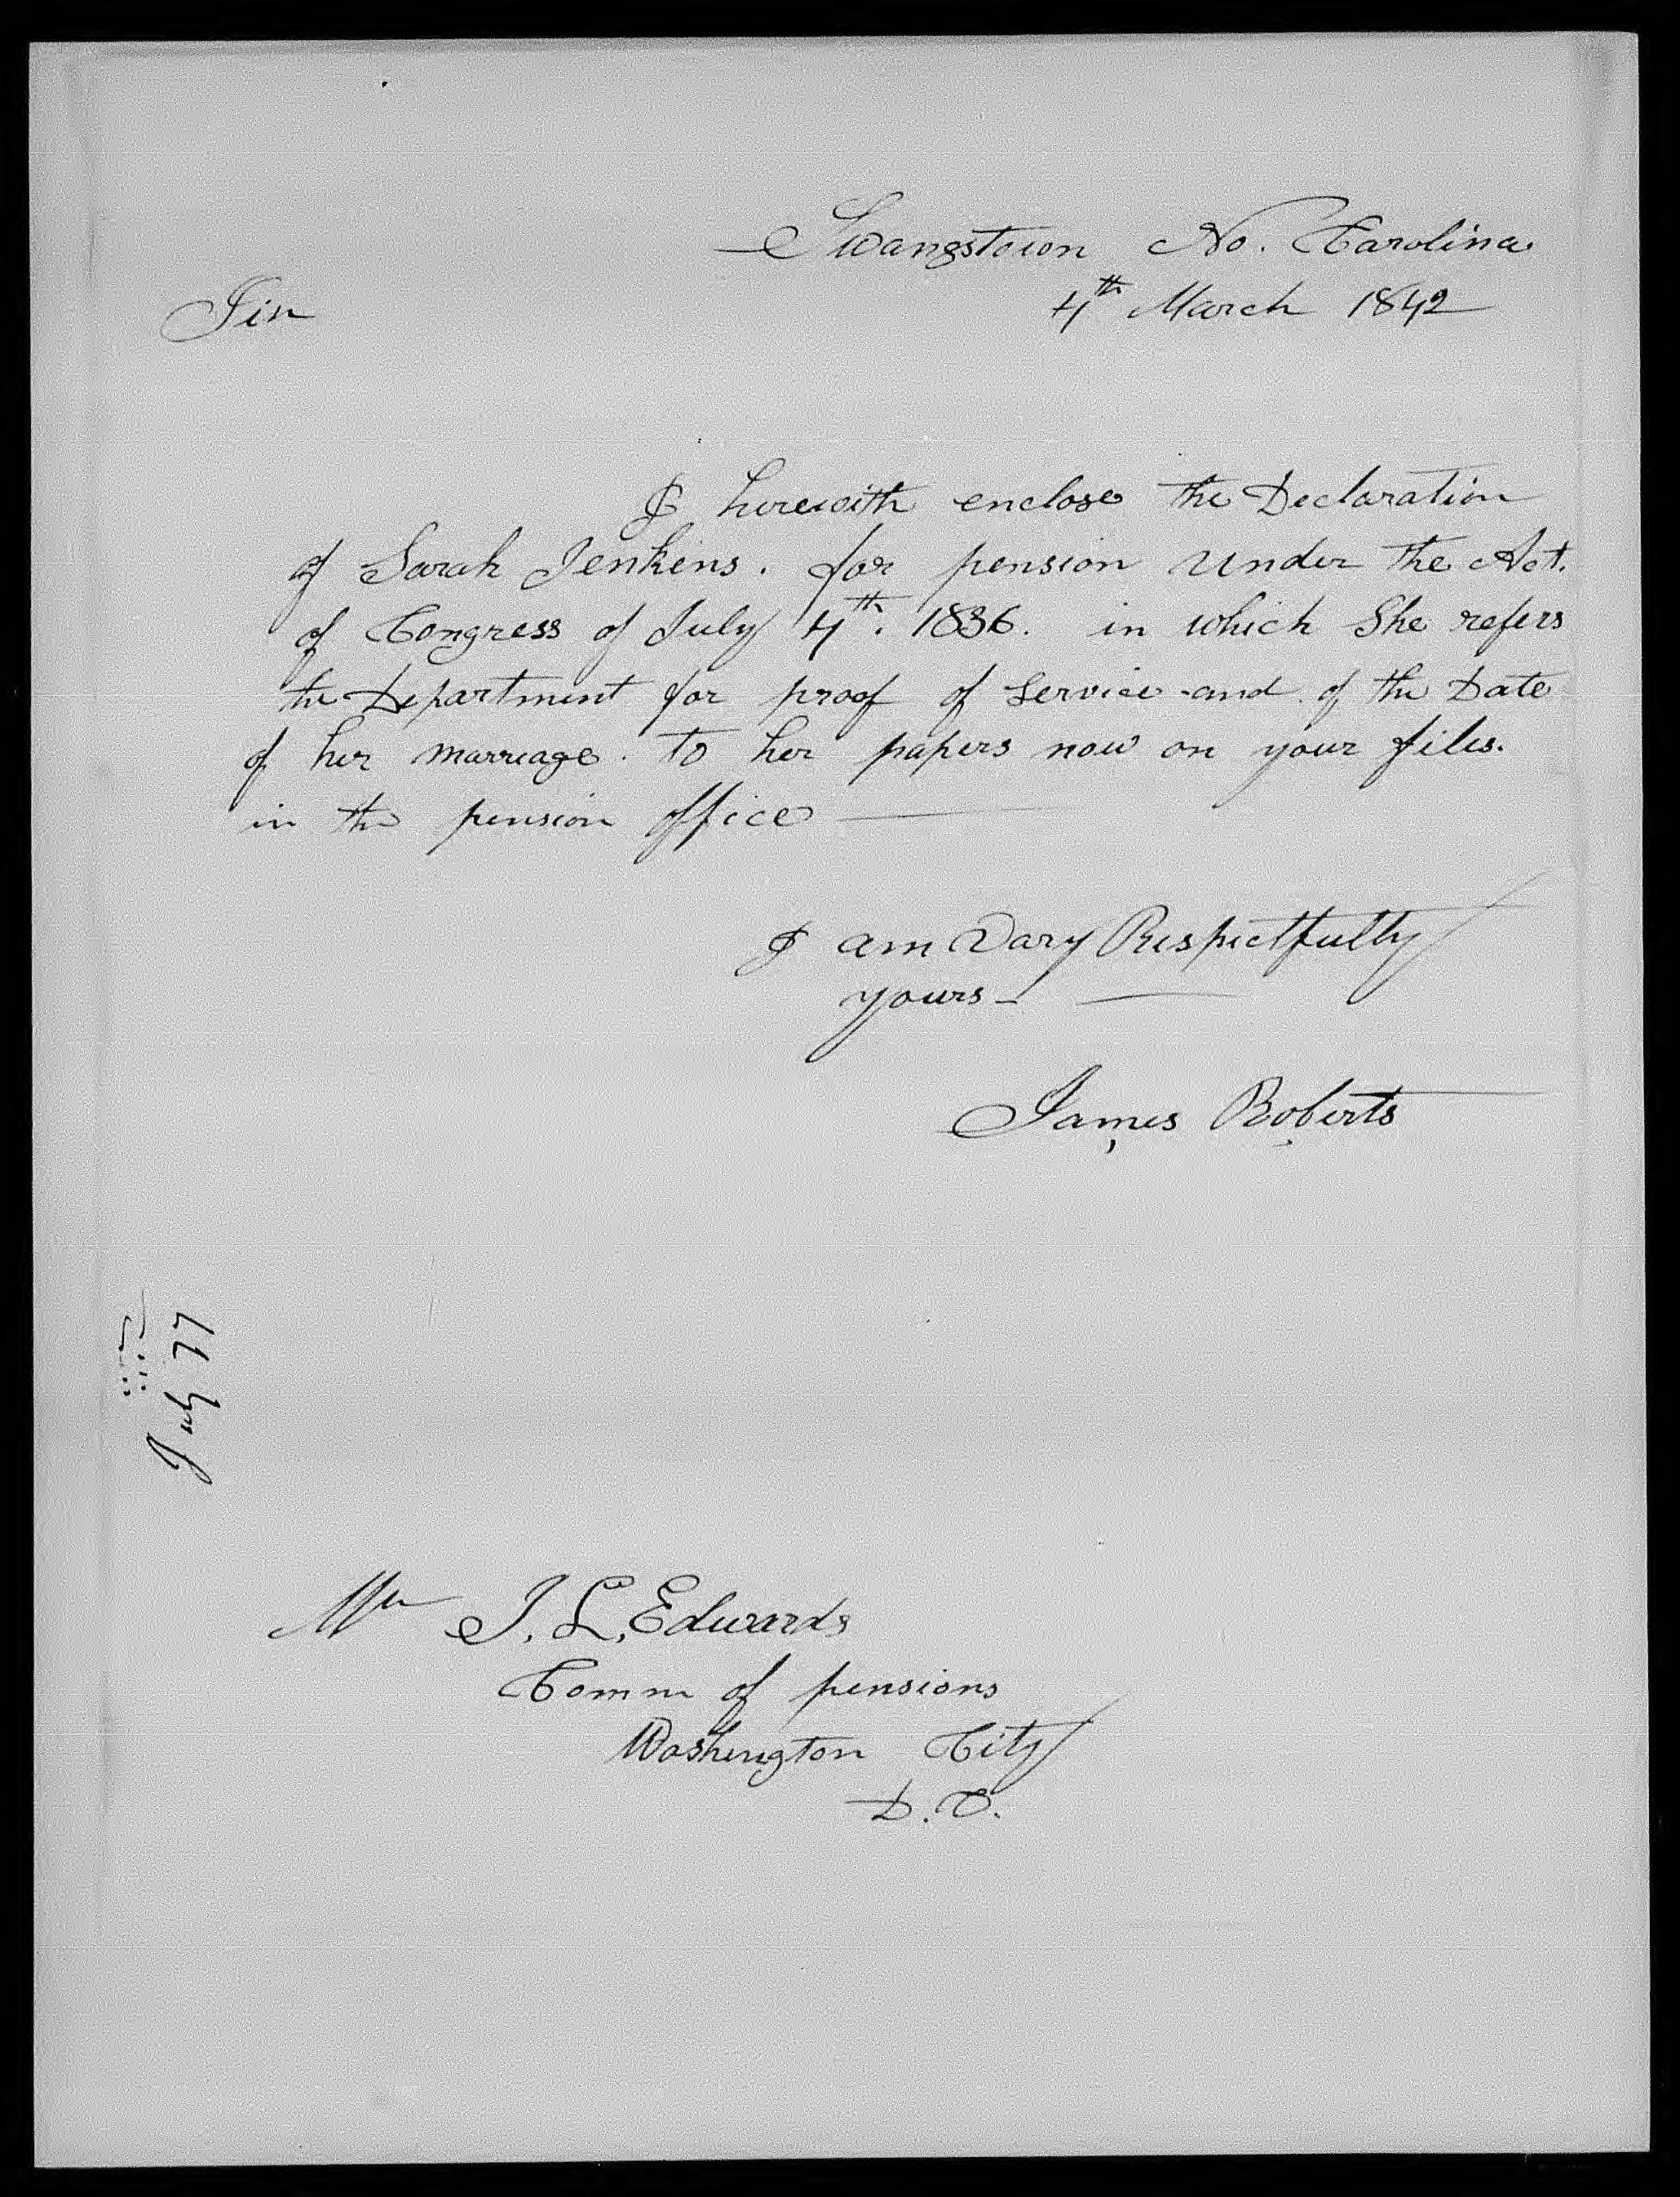 Swangstown No. Carolina
4th March 1842
Sir
I herewith enclose the Declaration
of Sarah Jenkins. for pension under the Act.
of Congress of July 4th. 1836. in which She refers
the Department for proof of Service and of the Date
of her marriage. to her papers now on your files.
in the pension office
I am Vary Respectfully
yours
James Roberts
July 77
Mr J. L. Edwards
Comm of pensions
Washington City
D. C.